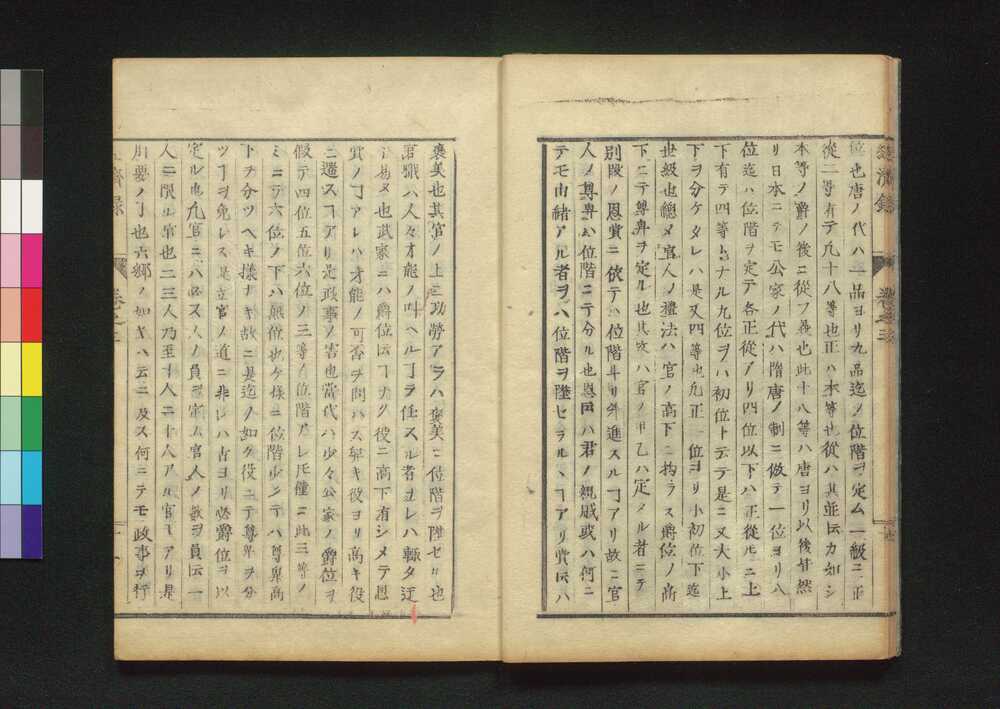 經濟録
卷之三
位也唐ノ代ハ一品ヨリ九品迄ノ位階ヲ定ム一級ニ正
從二等有テ凡十八等也正ハ本等也從ハ其並伝カ如シ
本等ノ爵ノ後ニ從フ義也此十八等ハ唐ヨリ以後皆然
リ日本ニテモ公家ノ代ハ隋唐ノ制ニ倣テ一位ヨリ八
位迄ハ位階ヲ定テ各正從アリ四位以下ハ正從ニ上
下有テ四等トナル九位ヲハ初位ト是ニ又大小上
下ヲ分ケタレハ是又四等也凡正一位ヨリ小初位下迄
世級也總メ官人ノ禮法ハ官ノ高下ニ拘ラス爵位ノ高
下ニテ尊卑ヲ定ル也其故ハ官ノ甲乙ハ定メル者ニテ
別段ノ恩賞ニ依テハ位階斗リ昇進スルアリ故ニ官
人ノ尊卑ハ位階ニテ分ル也恩ハ君ノ親戚或ハ何ニ
テモ由緒アル者ヲハ位階ヲ陞セラルヽアリ賞伝ハ
褒美也其官ノ上ニ功勞アラハ褒美ニ位階ヲ陞セル也
官職ハ人々才能ノ叶ヘルヲ任スル者ヨレハ輙タ迁
易ヌ也武家ニハ爵位伝ナク役ニ高下有シメテ恩
賞ノアレハ才能ノ可否ヲ問ハス卑キ役ヨリ高キ役
ニ遷スアリ是政事ノ害也當代ハ少々公家ノ爵位ヲ
假テ四位五位六位ノ三等ノ位階アレ𪜈僅ニ此三等ノ
ミニテ六位ノ下ハ無位也ケ様ニ位階少シテハ尊卑高
下ヲ分ツヘキ様ナキ故ニ是迄ノ如ク役ニテ尊卑ヲ分
ツヲ免レス是立官ノ道ニ非レハ古ヨリ必爵位ヲ以
定ル也凡官ニハ必ス人ノ員ヲ定ム官人ノ數ヲ員伝一
人ニ限ル官也二三人乃至十人二十人アル官アリ是
用要ノ也六郷ノ如キハ云ニ及ス何ニテモ政事ヲ行
經濟録
卷之三